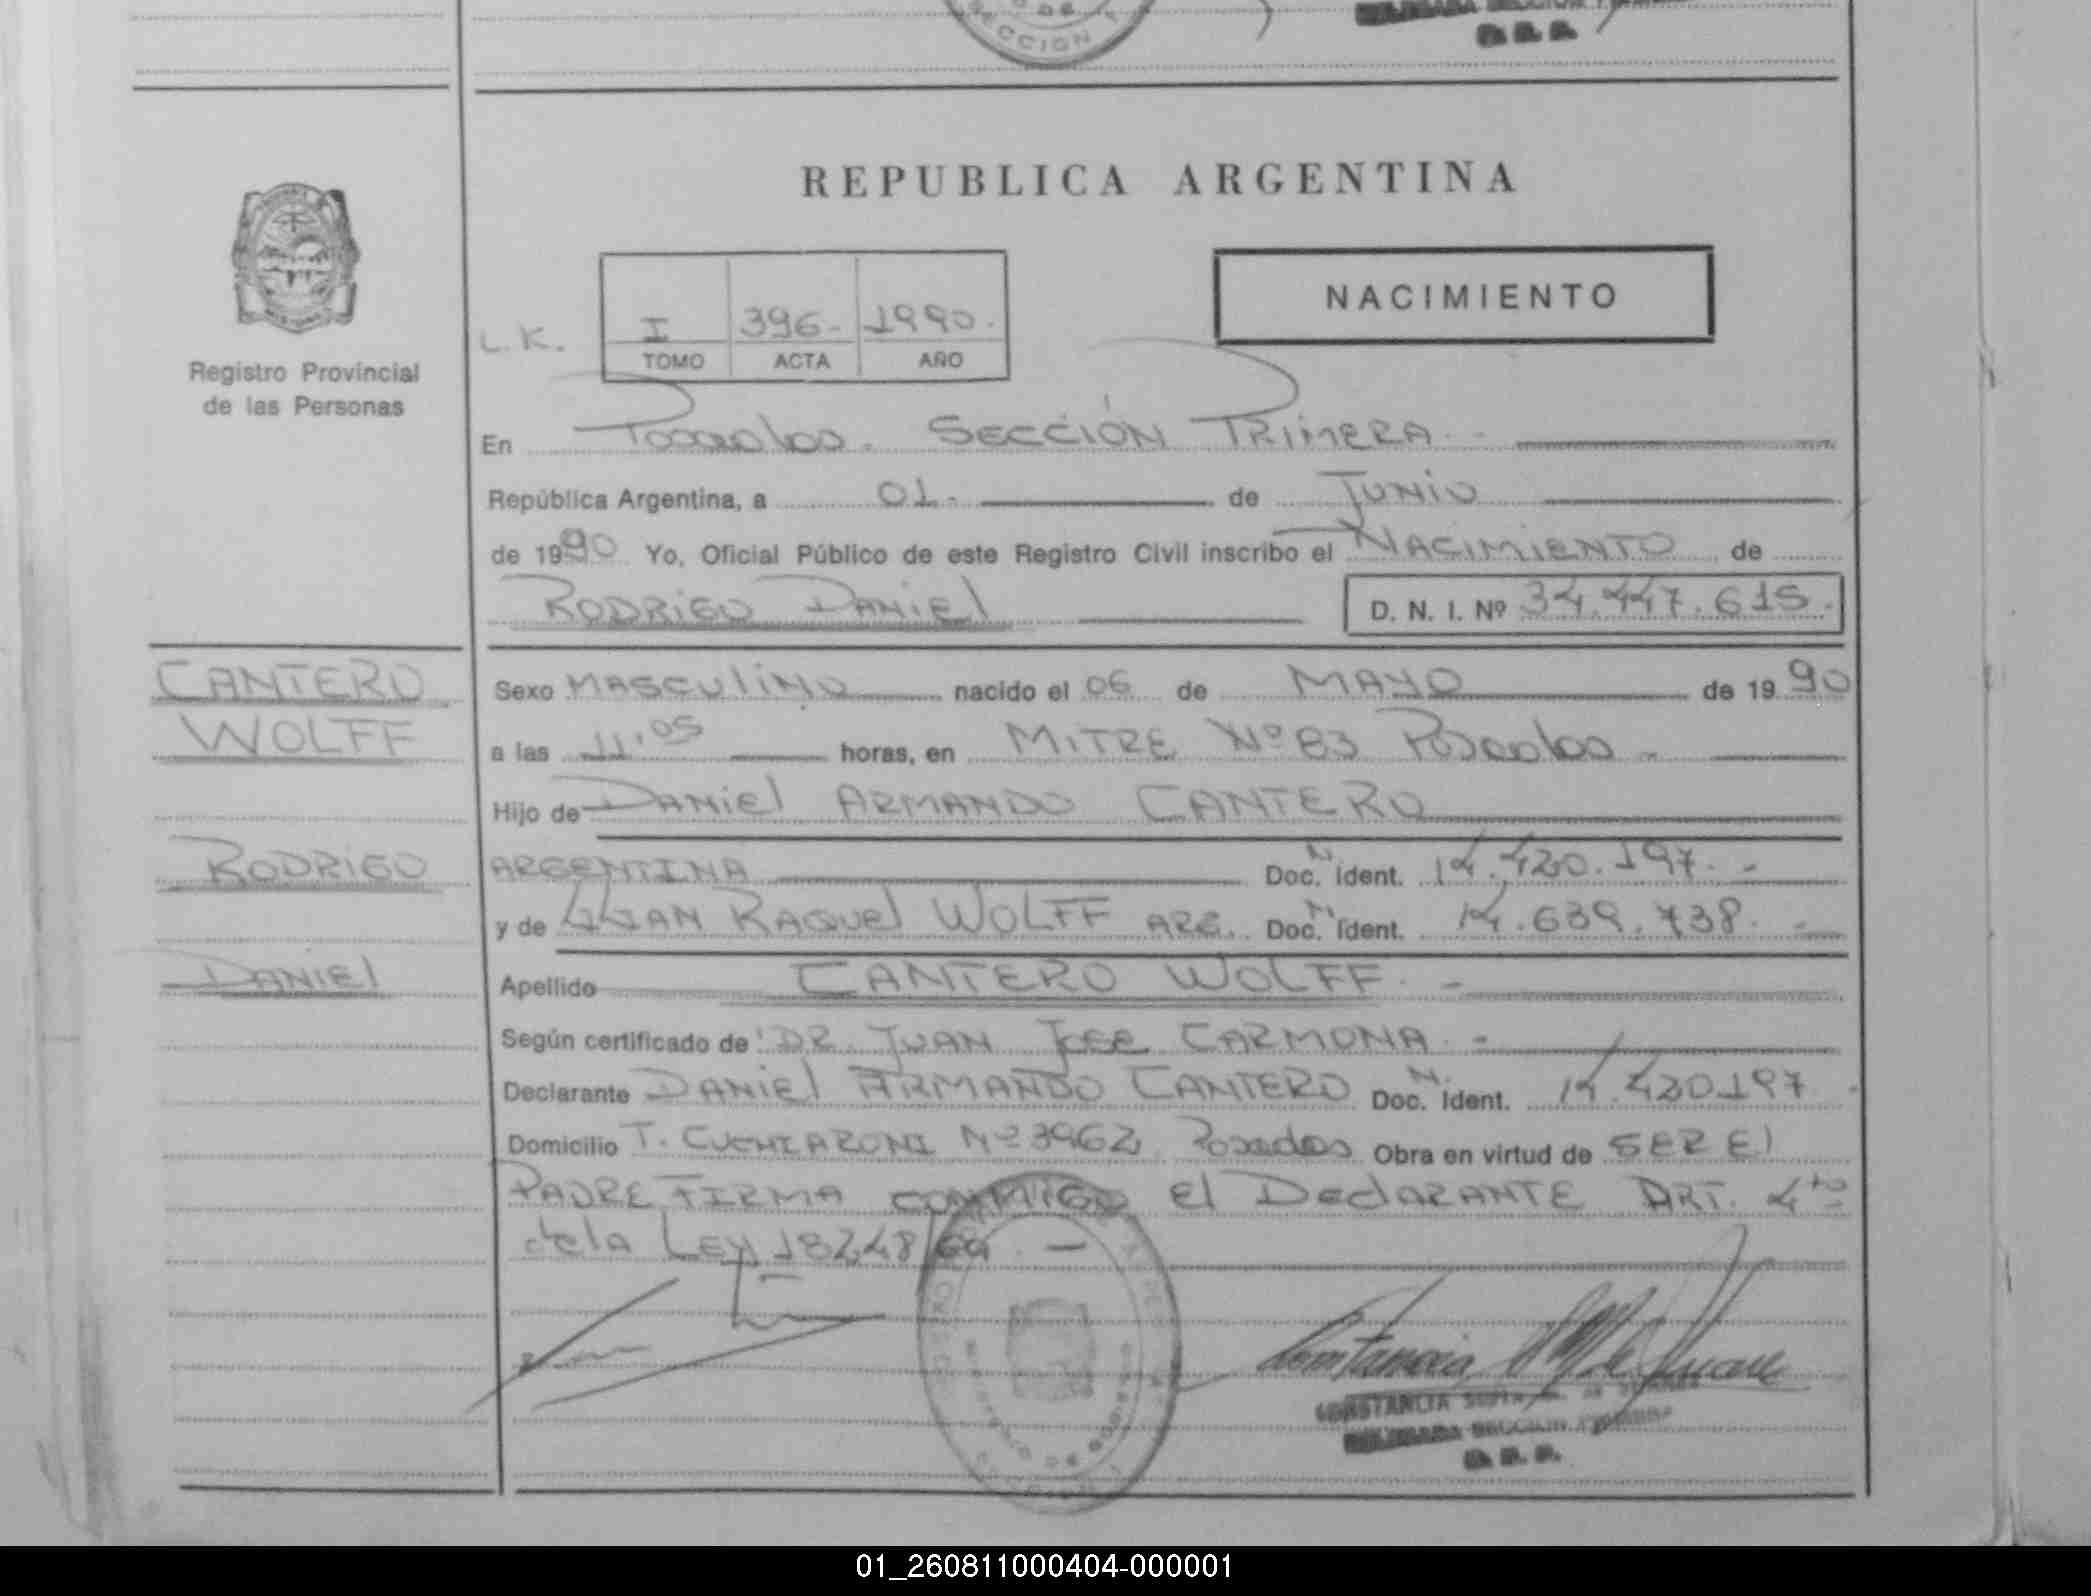 SECCION
D. R. P.
REPUBLICA ARGENTINA
NACIMIENTO
L.K.
I 396.- 1990.
TOMO ACTA AÑO
Registro Provincial
de las Personas
En Posadas. SECCIÓN PRIMERA.-
República Argentina, a 01.- de JUNIO
de 1990 Yo, Oficial Público de este Registro Civil inscribo el NACIMIENTO de
RODRIGO DANIEL D. N. I. Nº 34.447.615.
CANTERO
WOLFF
RODRIGO
DANIEL
Sexo MASCULINO nacido el 06 de MAYO de 1990
a las 11'05 horas, en MITRE Nº 83 Posadas -
Hijo de DANIEL ARMANDO CANTERO
ARGENTINA Doc. N. Ident. 14.420.197.-
y de LILIAN RAQUEL WOLFF ARG. Doc. N. Ident. 14.639.738.-
Apellido CANTERO WOLFF.-
Según certificado de DR. JUAN JOSE CARMONA.-
Declarante DANIEL ARMANDO CANTERO Doc. N. Ident. 14.420197
Domicilio T. Nº 3962 Posadas Obra en virtud de SER El
PADRE FIRMA CONMIGO El DEClARANTE ART. 4to
de la LEY 18248/69. —
Constancia
CONSTANCIA
DELEGADA SECCION PRIMERA
D. R. P.
01_260811000404-000001